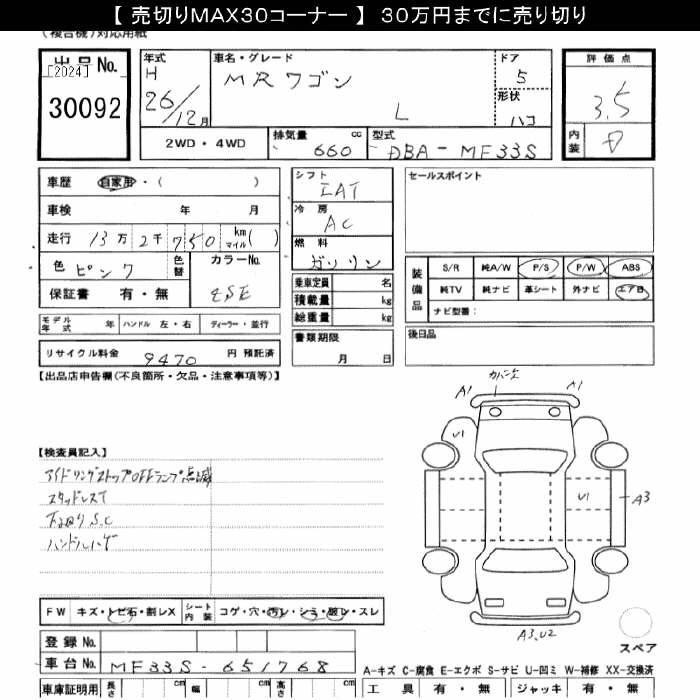 【 売切りMAX30コーナー 】 30万円までに売り切り
(複合機)対応用紙
出品No.
[2024]
30092
年式
H
26/12月
車名・グレード
MRワゴン
L
ドア
5
形状
ハコ
評価点
3.5
内装
D
2WD・4WD
排気量 660 cc
型式 DBA-MF33S
車歴 自家用・( )
車検 年 月
走行 13万2千750 km マイル( )
色 ピンク 色替
カラーNo. ZSE
保証書 有・無
シフト
IAT
冷房
AC
燃料
ガソリン
乗車定員 名
積載量 kg
総重量 kg
セールスポイント
装備品
S/R 純A/W P/S P/W ABS
純TV 純ナビ 革シート 外ナビ エアB
ナビ型番:
モデル年式 年 ハンドル 左・右 ディーラー・並行
リサイクル料金 9470 円 預託済
書類期限
月 日
後日品
【出品店申告欄(不良箇所・欠品・注意事項等)】
【検査員記入】
アイドリングストップOFFランプ点滅
スタッドレスT
下廻りS.C
ハンドルハゲ
A1
A1
U1
U1
A3
A3.U2
スペア
FW キズ・トビ石・割レX シート内装 コゲ・穴・汚レ・シミ・破レ・スレ
登録No.
車台No. MF33S-651768
車庫証明用 長さ cm 幅 cm 高さ cm
A-キズ C-腐食 E-エクボ S-サビ U-凹ミ W-補修 XX-交換済
工具 有・無 ジャッキ 有・無